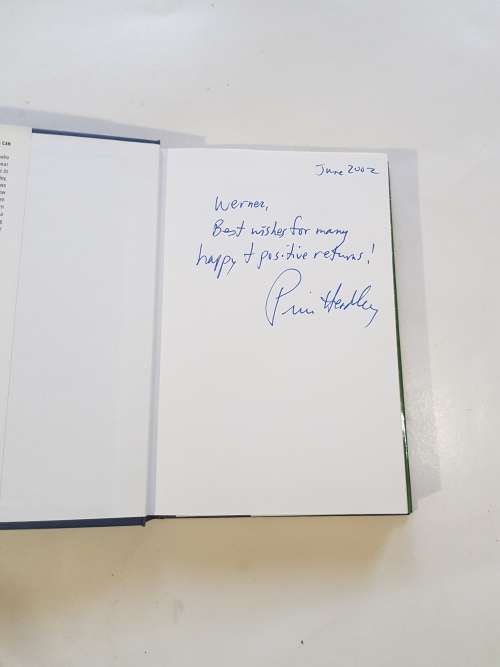 June 2002
Werner,
Best wishes for many
happy + positive returns!